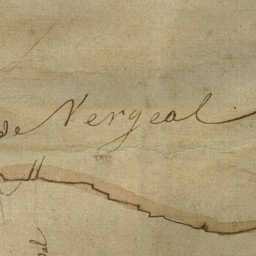 de Vergeal